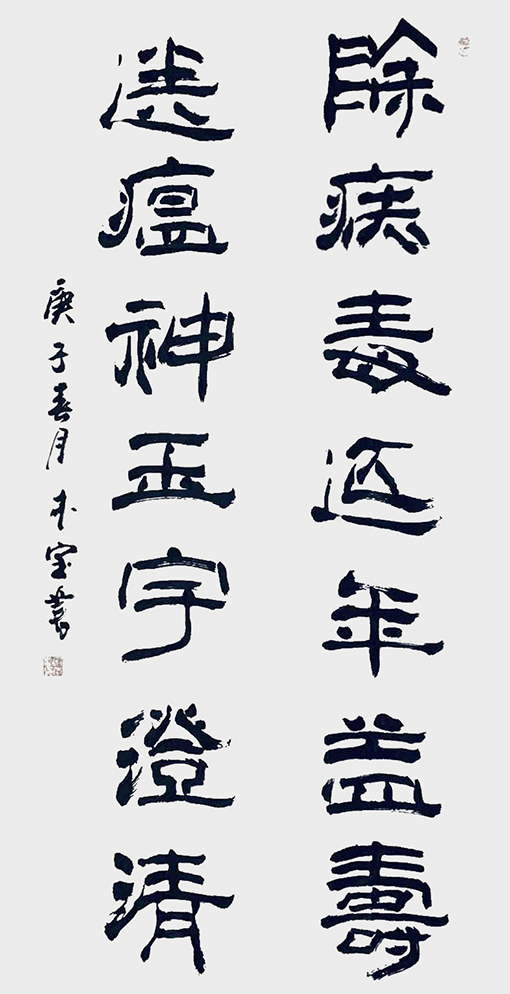 除疾毒延年益壽
送瘟神玉宇澄清
庚子春月 書